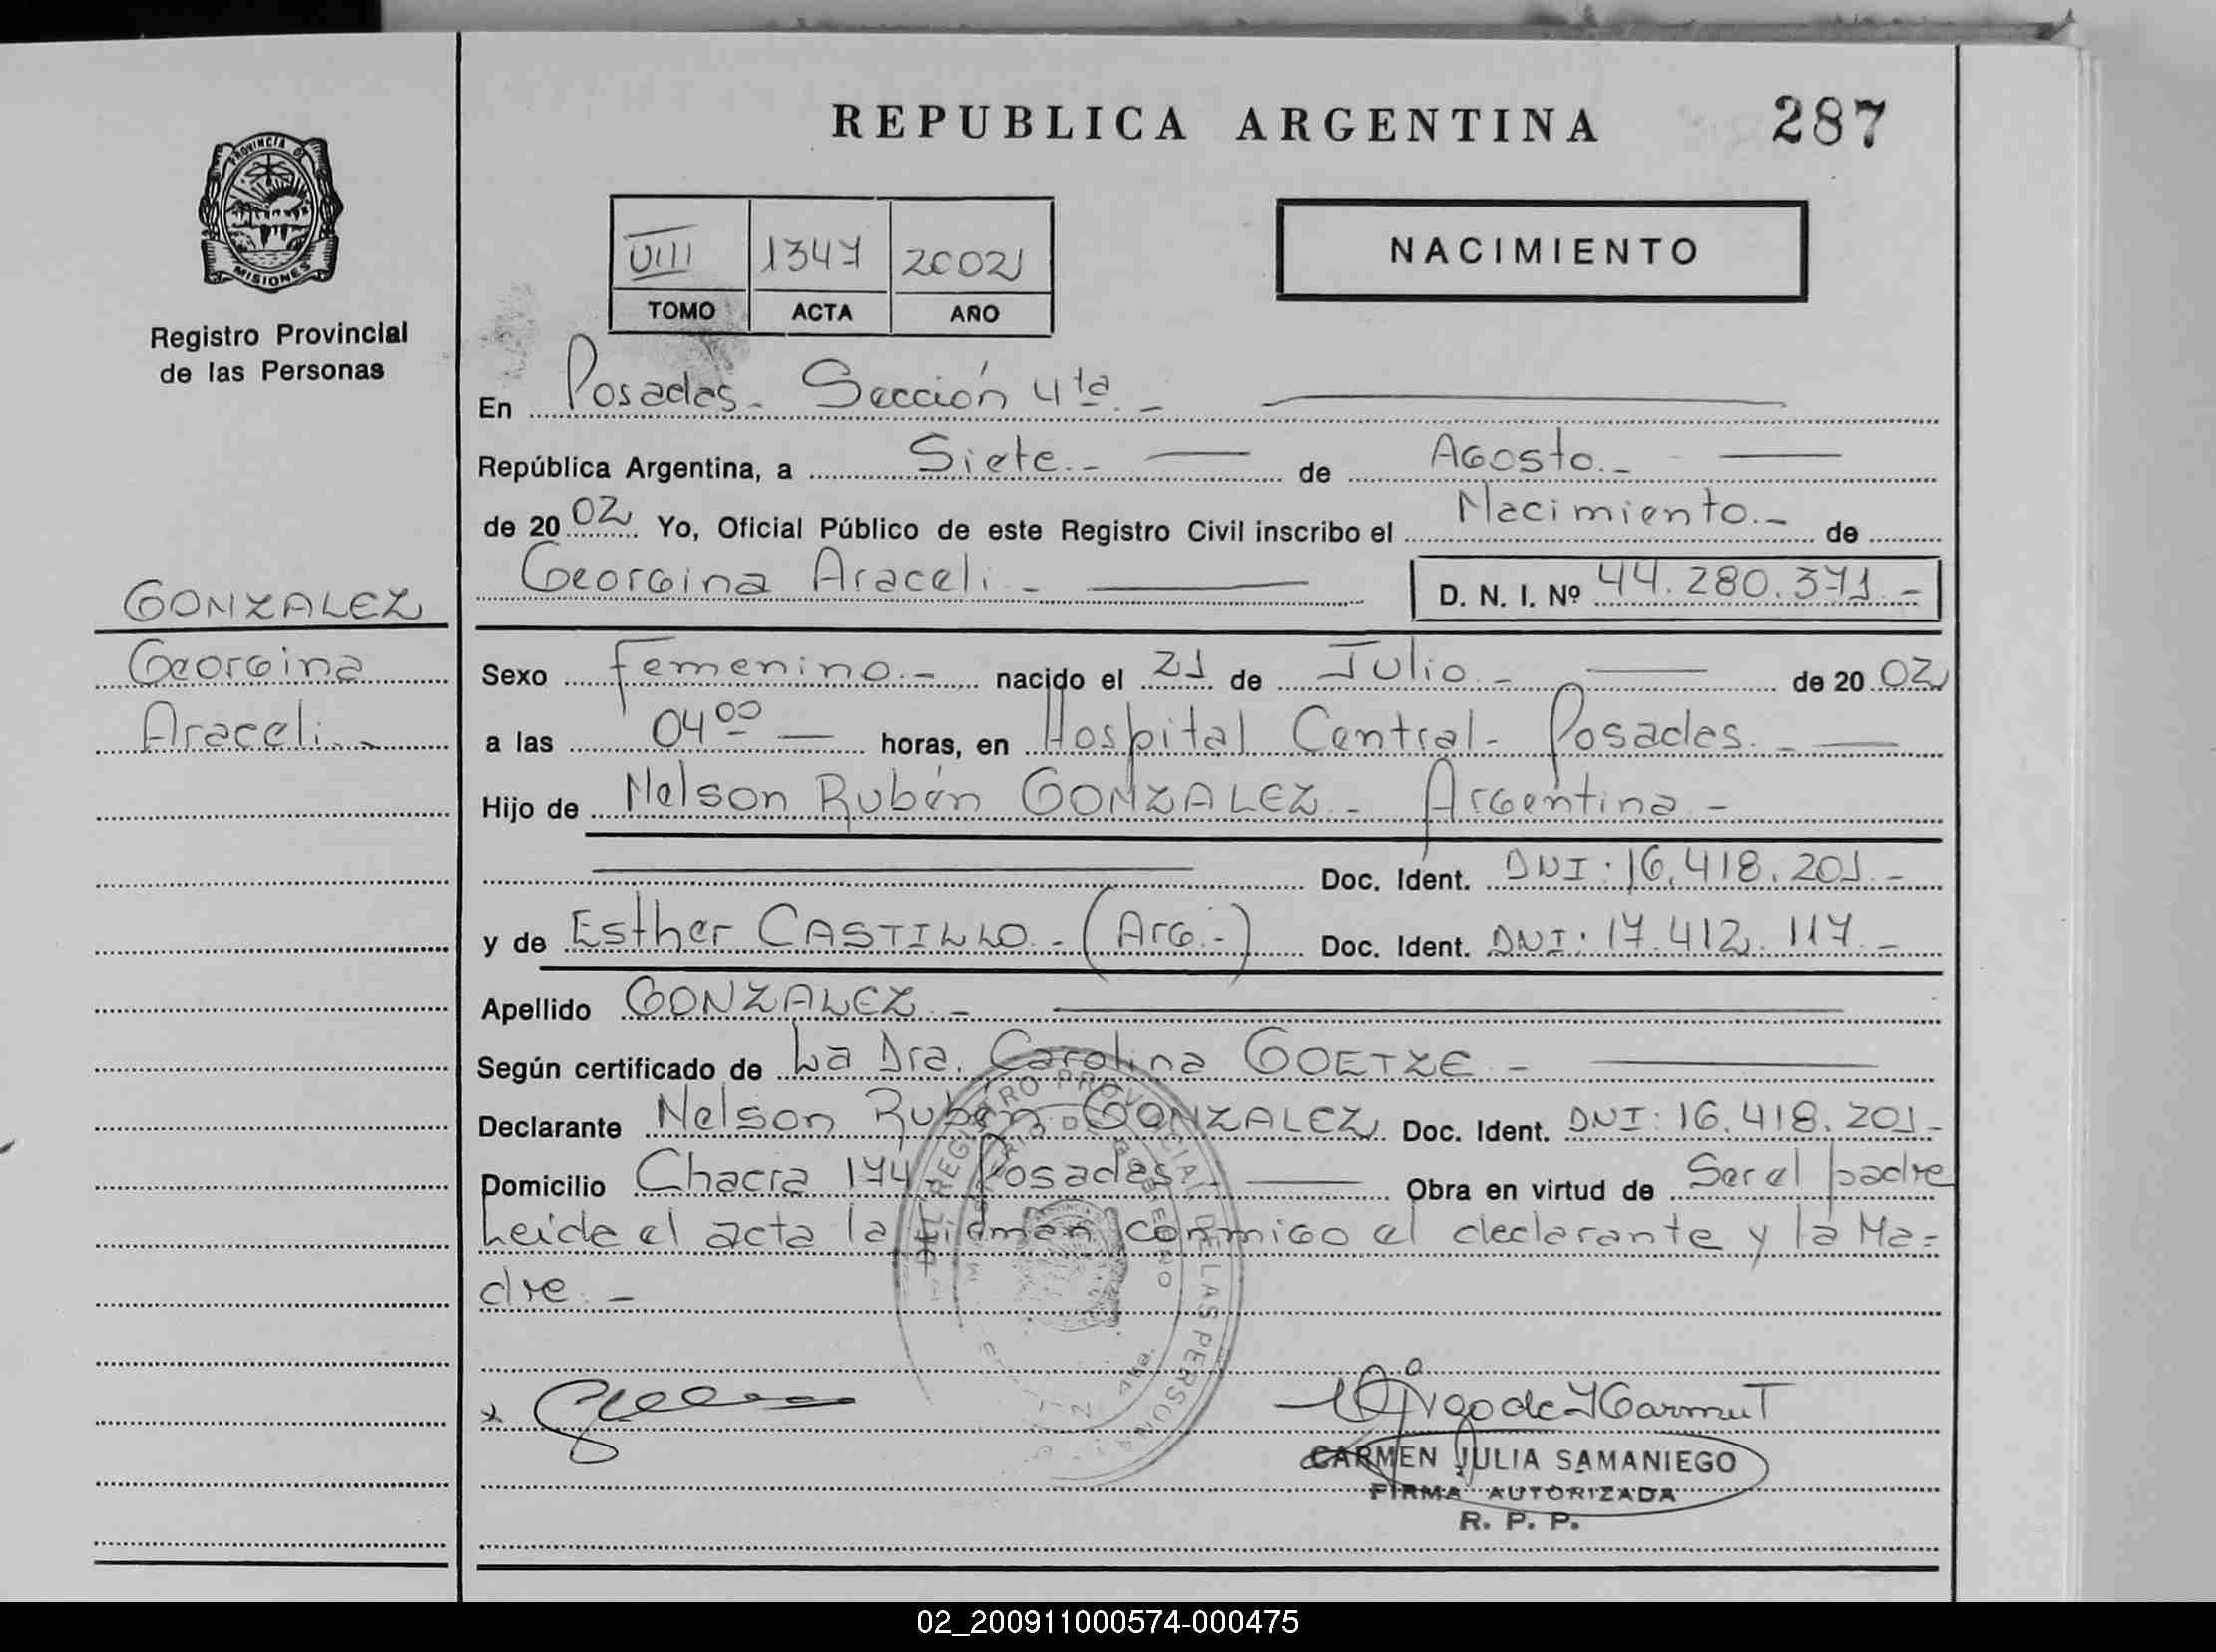 REPUBLICA ARGENTINA 287
PROVINCIA DE
MISIONES
Registro Provincial
de las Personas
VIII 1347 2002
TOMO ACTA AÑO
NACIMIENTO
En Posadas - Sección 4ta. -
República Argentina, a Siete. - de Agosto. -
de 20 02 Yo, Oficial Público de este Registro Civil inscribo el Nacimiento. - de
Georgina Araceli - D. N. I. Nº 44.280.371. -
GONZALEZ
Georgina
Araceli. -
Sexo Femenino. - nacido el 21 de Julio - de 20 02
a las 04 00 - horas, en Hospital Central - Posadas. -
Hijo de Nelson Rubén GONZALEZ - Argentina -
Doc. Ident. DNI: 16.418.201. -
y de Esther CASTILLO. - (Arg. -) Doc. Ident. DNI: 17.412.117. -
Apellido GONZALEZ. -
Según certificado de La Dra. Carolina GOETZE -
Declarante Nelson Rubén GONZALEZ Doc. Ident. DNI: 16.418.201 -
Domicilio Chacra 174 Posadas - Obra en virtud de Ser el padre
Leida el acta la firman conmigo el declarante y la Ma=
dre. -
DEL REGISTRO PROVINCIAL DE LAS PERSONAS
CARMEN JULIA SAMANIEGO
FIRMA AUTORIZADA
R. P. P.
02_200911000574-000475